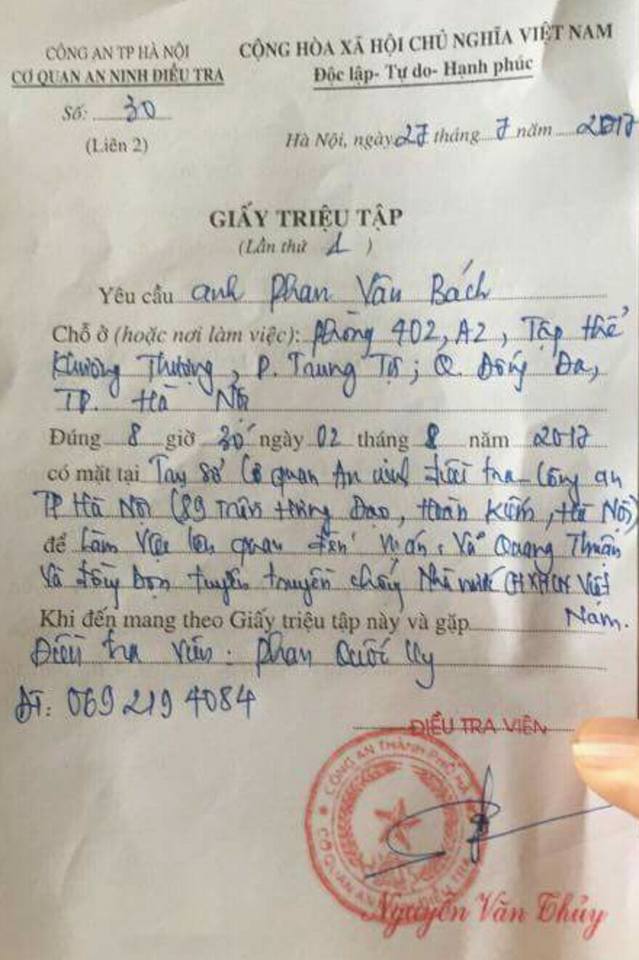 CÔNG AN TP HÀ NỘI
CƠ QUAN AN NINH ĐIỀU TRA
Số: 30
(Liên 2)
CỘNG HÒA XÃ HỘI CHỦ NGHĨA VIỆT NAM
Độc lập- Tự do- Hạnh phúc
Hà Nội, ngày 27 tháng 7 năm 2017
GIẤY TRIỆU TẬP
(Lần thứ 1 )
Yêu cầu anh Phan Văn Bách
Chỗ ở (hoặc nơi làm việc): phòng 402, A2, Tập thể
Khương Thượng, P. Trung Tự; Q. Đống Đa,
TP. Hà Nội
Đúng 8 giờ 30 ngày 02 tháng 8 năm 2017
có mặt tại Trụ sở Cơ quan An ninh điều tra - Công an
TP Hà Nội (89 Trần Hưng Đạo, Hoàn Kiếm, Hà Nội)
để Làm việc liên quan đến vụ án: Vũ Quang Thuận
và đồng bọn tuyên truyền chống Nhà nước CHXHCN Việt
Nam.
Khi đến mang theo Giấy triệu tập này và gặp
Điều tra viên: Phan Quốc Uy
ĐT: 069 219 4084
ĐIỀU TRA VIÊN
CÔNG AN THÀNH PHỐ HÀ
CƠ QUAN AN ĐIỀU TRA
Nguyễn Văn Thủy